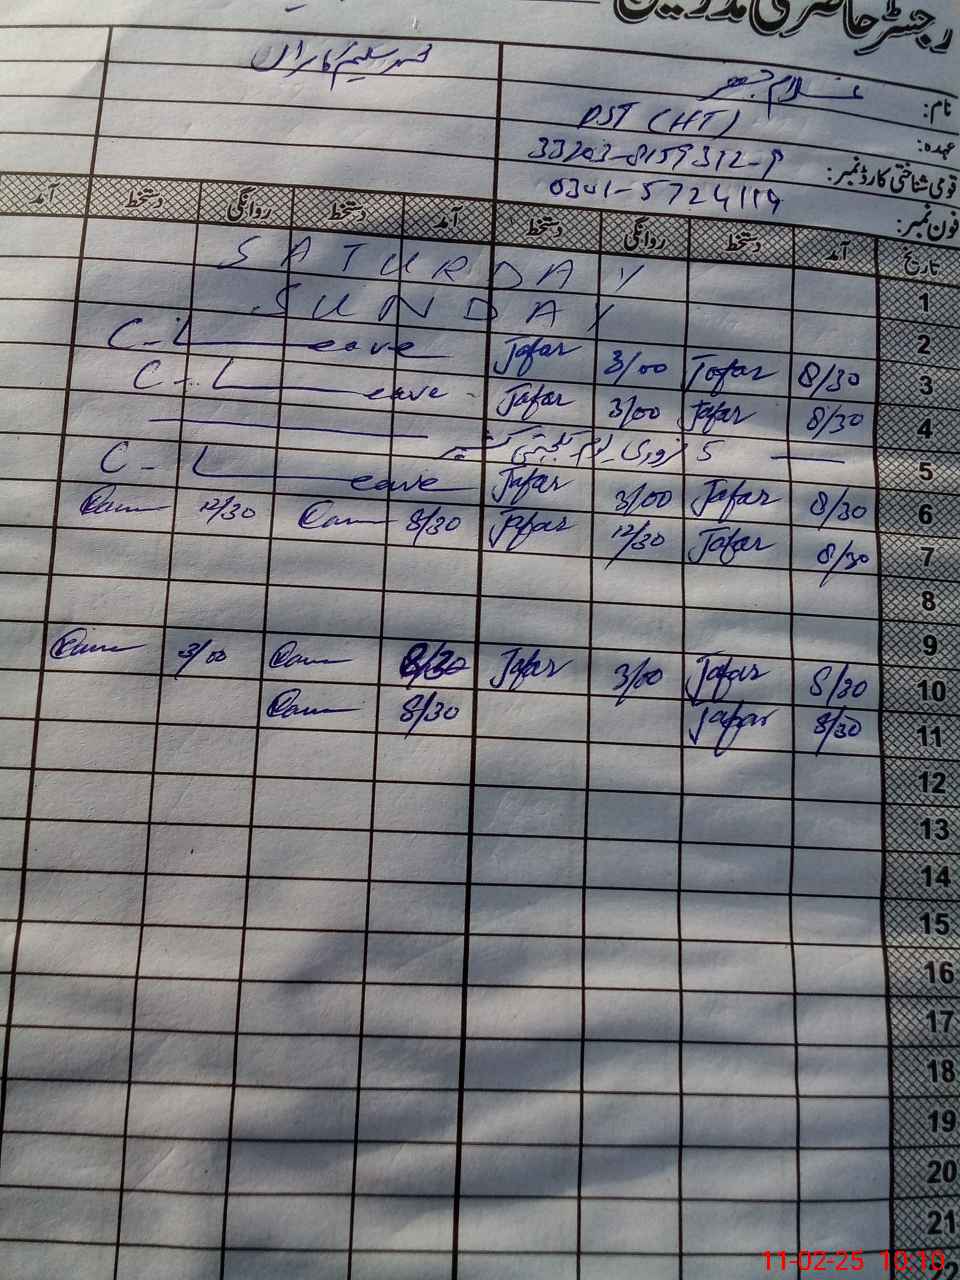 رجسٹر حاضری مدرسین
نام: غلام جعفر محمد سلیم کامران
عہدہ: PST (HT)
قومی شناختی کارڈ نمبر: 33203-8159312-9
فون نمبر: 0301-5724119
تاریخ آمد دستخط روانگی دستخط آمد دستخط روانگی دستخط آمد
1 SATURDAY
2 SUNDAY
3 8/30 Jafar 3/00 Jafar C-Leave
4 8/30 Jafar 3/00 Jafar C-Leave
5 5 فروری یوم یکجہتی کشمیر
6 8/30 Jafar 3/00 Jafar C-Leave
7 8/30 Jafar 12/30 Jafar 8/30 12/30
8
9
10 8/30 Jafar 3/00 Jafar 8/30 3/00
11 8/30 Jafar 8/30
12
13
14
15
16
17
18
19
20
21
11-02-25 10:10